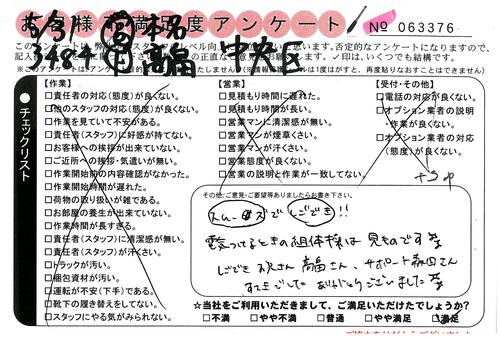 お客様満足度アンケート
No 063376
5/31
3484
中央区
このアンケートは、弊
記入
の正直なご意見をお願い
します。否定的なアンケートになりますので、
✓印は、いくつでも結構です。
チェックリスト
【作業】
□責任者の対応(態度)が良くない。
□他のスタッフの対応(態度)が良くない。
□作業を見ていて不安がある。
□責任者(スタッフ)に好感が持てない。
□お客様への挨拶が出来ていない。
□ご近所への挨拶・気遣いが無い。
□作業開始前の内容確認がなかった。
□作業開始時間が遅れた。
□荷物の取り扱いが雑である。
□お部屋の養生が出来ていない。
□作業時間が長すぎる。
□責任者(スタッフ)に清潔感が無い。
□責任者(スタッフ)が汗くさい。
□トラックが汚い。
□梱包資材が汚い。
□運転が不安(下手)である。
□靴下の履き替えをしてない。
□スタッフにやる気がみられない。
【営業】
□見積もり時間に遅れた。
□見積もり時間が長い。
□営業マンに清潔感が無い。
□営業マンが煙草くさい。
□営業マンが汗くさい。
□営業態度が良くない。
□営業の説明と作業が一致してない。
【受付・その他】
□電話の対応が良くない。
□オプション業者の説明
作業が良くない。
□オプション業者の対応
(態度)が良くない。
その他、ご意見・ご要望等ありましたらお書き下さい。
スムーズで しごでき!!
さん 高畠さん、サポート 森田さん
ありがとうございました
☆当社をご利用いただきまして、ご満足いただけたでしょうか?
□不満 □やや不満 □普通 □やや満足 □満足